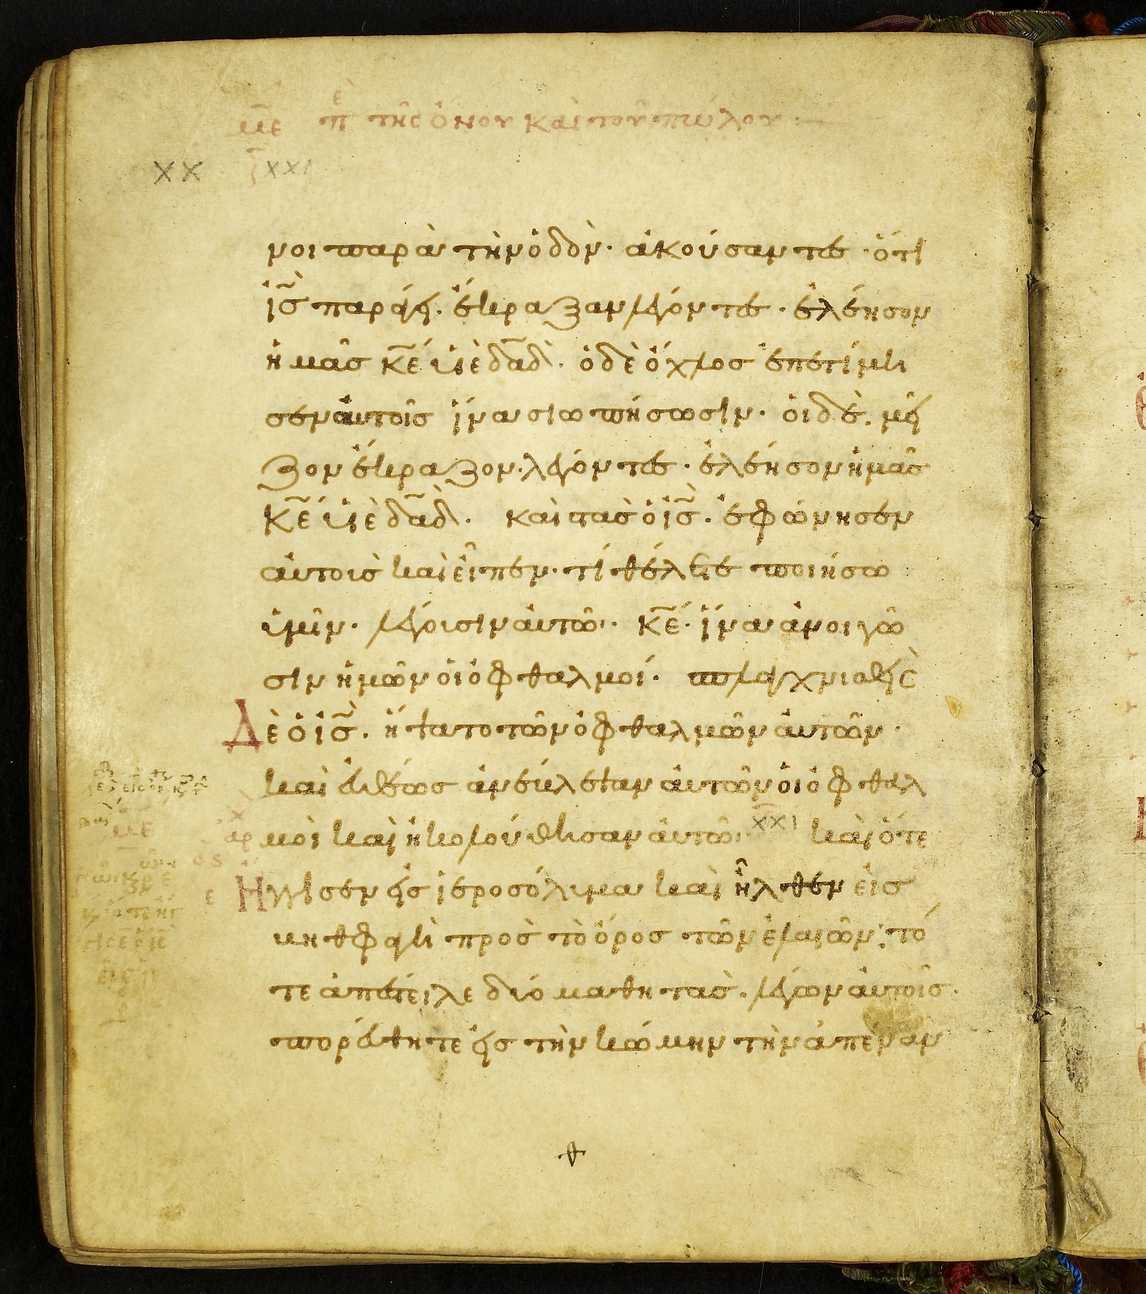 με π̅ε τῆς ὄνου καὶ τοῦ πώλου
XX XXI
νοι παρὰ τὴν ὁδόν· ἀκούσαντες ὅτι
ις̅ παράγει· ἔκραξαν λέγοντες· ἐλέησον
ἡμᾶς κε̅ υἱὲ δα̅δ· ὁ δὲ ὄχλος ἐπετίμη
σεν αὐτοῖς ἵνα σιωπήσωσιν· οἱ δὲ μεῖ
ζον ἔκραζον λέγοντες· ἐλέησον ἡμᾶς
κε̅ υἱὲ δα̅δ· καὶ στὰς ὁ ις̅· ἐφώνησεν
αὐτοὺς καὶ εἶπεν· τί θέλετε ποιήσω
ὑμῖν· λέγουσιν αὐτῶ· κε̅· ἵνα ἀνοιγῶ
σιν ἡμῶν οἱ ὀφθαλμοί· σπλαγχνισθεὶς
δὲ ὁ ις̅· ἥψατο τῶν ὀφθαλμῶν αὐτῶν·
καὶ εὐθέως ἀνέβλεψαν αὐτῶν οἱ ὀφθαλ
μοὶ καὶ ἠκολούθησαν αὐτῶ· XXI καὶ ὅτε
ἤγγισεν εἰς ἱεροσόλυμα καὶ ἦλθεν εἰς
βηθφαγὴ πρὸς τὸ ὄρος τῶν ἐλαιῶν· τό
τε ἀπέστειλε δύο μαθητὰς· λέγων αὐτοῖς·
πορεύθητε εἰς τὴν κώμην τὴν ἀπέναν